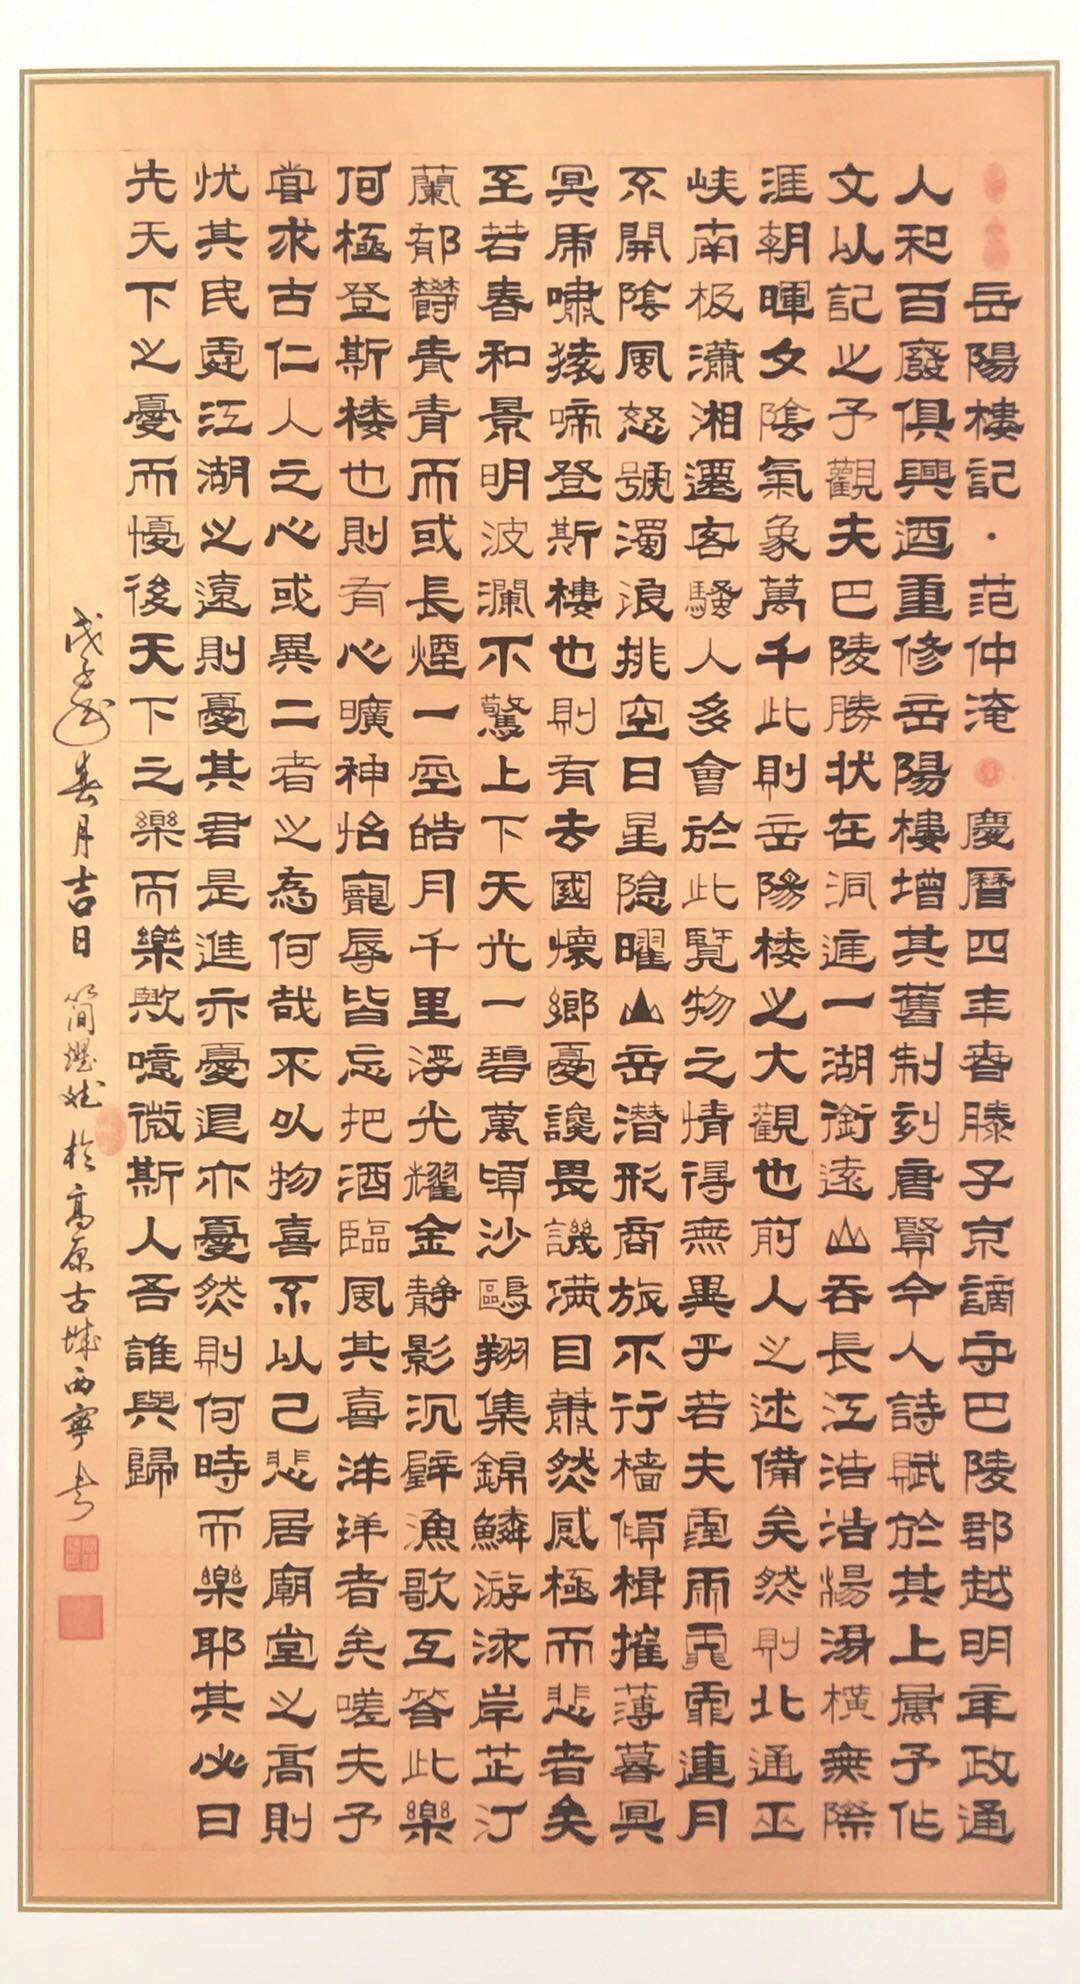 岳陽樓記·范仲淹慶曆四年春滕子京謫守巴陵郡越明年政通
人和百廢俱興迺重修岳陽樓增其舊制刻唐賢今人詩賦於其上屬予作
文以記之予觀夫巴陵勝狀在洞庭一湖銜遠山吞長江浩浩湯湯橫無際
涯朝暉夕陰氣象萬千此則岳陽楼之大觀也前人之述備矣然則北通巫
峡南极瀟湘遷客騷人多會於此覽物之情得無異乎若夫霪雨霏霏連月
不開陰風怒號濁浪排空日星隐曜山岳潜形商旅不行檣傾楫摧薄暮冥
冥虎嘯猿啼登斯樓也則有去國懷鄉憂讒畏譏满目蕭然感極而悲者矣
至若春和景明波瀾不驚上下天光一碧萬頃沙鷗翔集錦鱗游泳岸芷汀
蘭郁欝青青而或長煙一空皓月千里浮光耀金静影沉璧漁歌互答此樂
何極登斯楼也則有心曠神怡寵辱皆忘把酒臨風其喜洋洋者矣嗟夫予
嘗求古仁人之心或異二者之為何哉不以物喜不以己悲居廟堂之高則
忧其民處江湖之遠則憂其君是進亦憂退亦憂然則何時而樂耶其必曰
先天下之憂而憂後天下之樂而樂歟噫微斯人吾誰與歸
戊子年春月吉日簡於高原古城西寧書